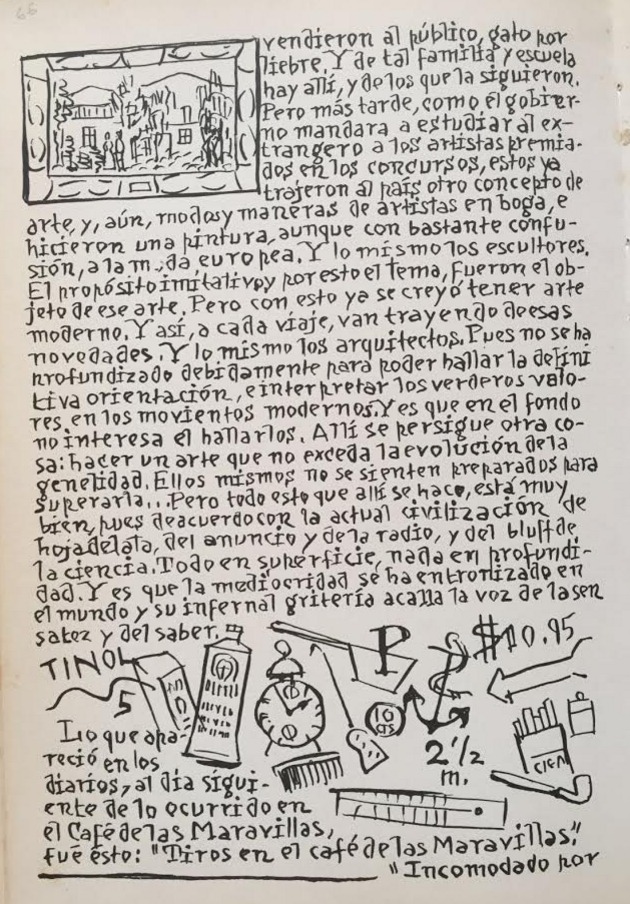 66
vendieron al público, gato por
liebre. Y de tal familia y escuela
hay allí, y de los que la siguieron.
Pero más tarde, como el gobier-
no mandara a estudiar al ex-
trangero a los artistas premia-
dos en los concursos, estos ya
trajeron al país otro concepto de
arte, y, aún, modas y maneras de artistas en boga, e
hicieron una pintura, aunque con bastante confu-
sión, a la moda europea. Y lo mismo los escultores.
El propósito imitativo y por esto el tema, fueron el ob-
jeto de ese arte. Pero con esto ya se creyó tener arte
moderno. Y así, a cada viaje, van trayendo de esas
novedades. Y lo mismo los arquitectos. Pues no se ha
profundizado debidamente para poder hallar la defini
tiva orientación, e interpretar los verderos valo-
res en los movientos modernos. Y es que en el fondo
no interesa el hallarlos. Allí se persigue otra co-
sa: hacer un arte que no exceda la evolución de la
genelidad. Ellos mismos no se sienten preparados para
superarla... Pero todo esto que allí se hace, está muy
bien, pues de acuerdo con la actual civilización de
hojadelata, del anuncio y de la radio, y del bluff de
la ciencia. Todo en superficie, nada en profundi-
dad. Y es que la mediocridad se ha entronizado en
el mundo y su infernal gritería acalla la voz de la sen
satez y del saber.
TINOL
5
P
$10.95
10
cts
2½
m.
Lo que apa-
reció en los
diarios, al día sigui-
ente de lo ocurrido en
el Café de las Maravillas,
fué ésto: "Tiros en el café de las Maravillas."
"Incomodado por